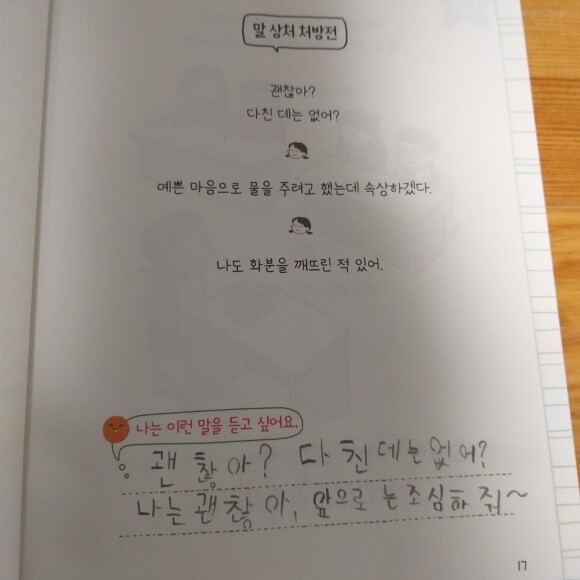 말 상처 처방전
괜찮아?
다친 데는 없어?
예쁜 마음으로 물을 주려고 했는데 속상하겠다.
나도 화분을 깨뜨린 적 있어.
나는 이런 말을 듣고 싶어요.
괜찮아? 다친데는없어?
나는괜찮아, 앞으로는조심하줘~
17